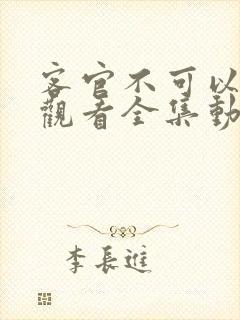 客官不可以
觀看全集動
李長進